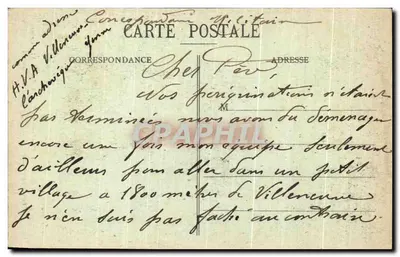 Correspondance Militaire
CARTE POSTALE
CORRESPONDANCE
ADRESSE
même adresse
H.V.A Villeneuve
l'archevêque Yonne
Cher Père,
Nos périgrinations n'étaient
M
pas terminées nous avons du demenager
encore une fois mon equipe seulement
d'ailleurs pour aller dans un petit
village a 1800 mètres de Villeneuve
Je n'en suis pas faché au contraire
CPArama.com